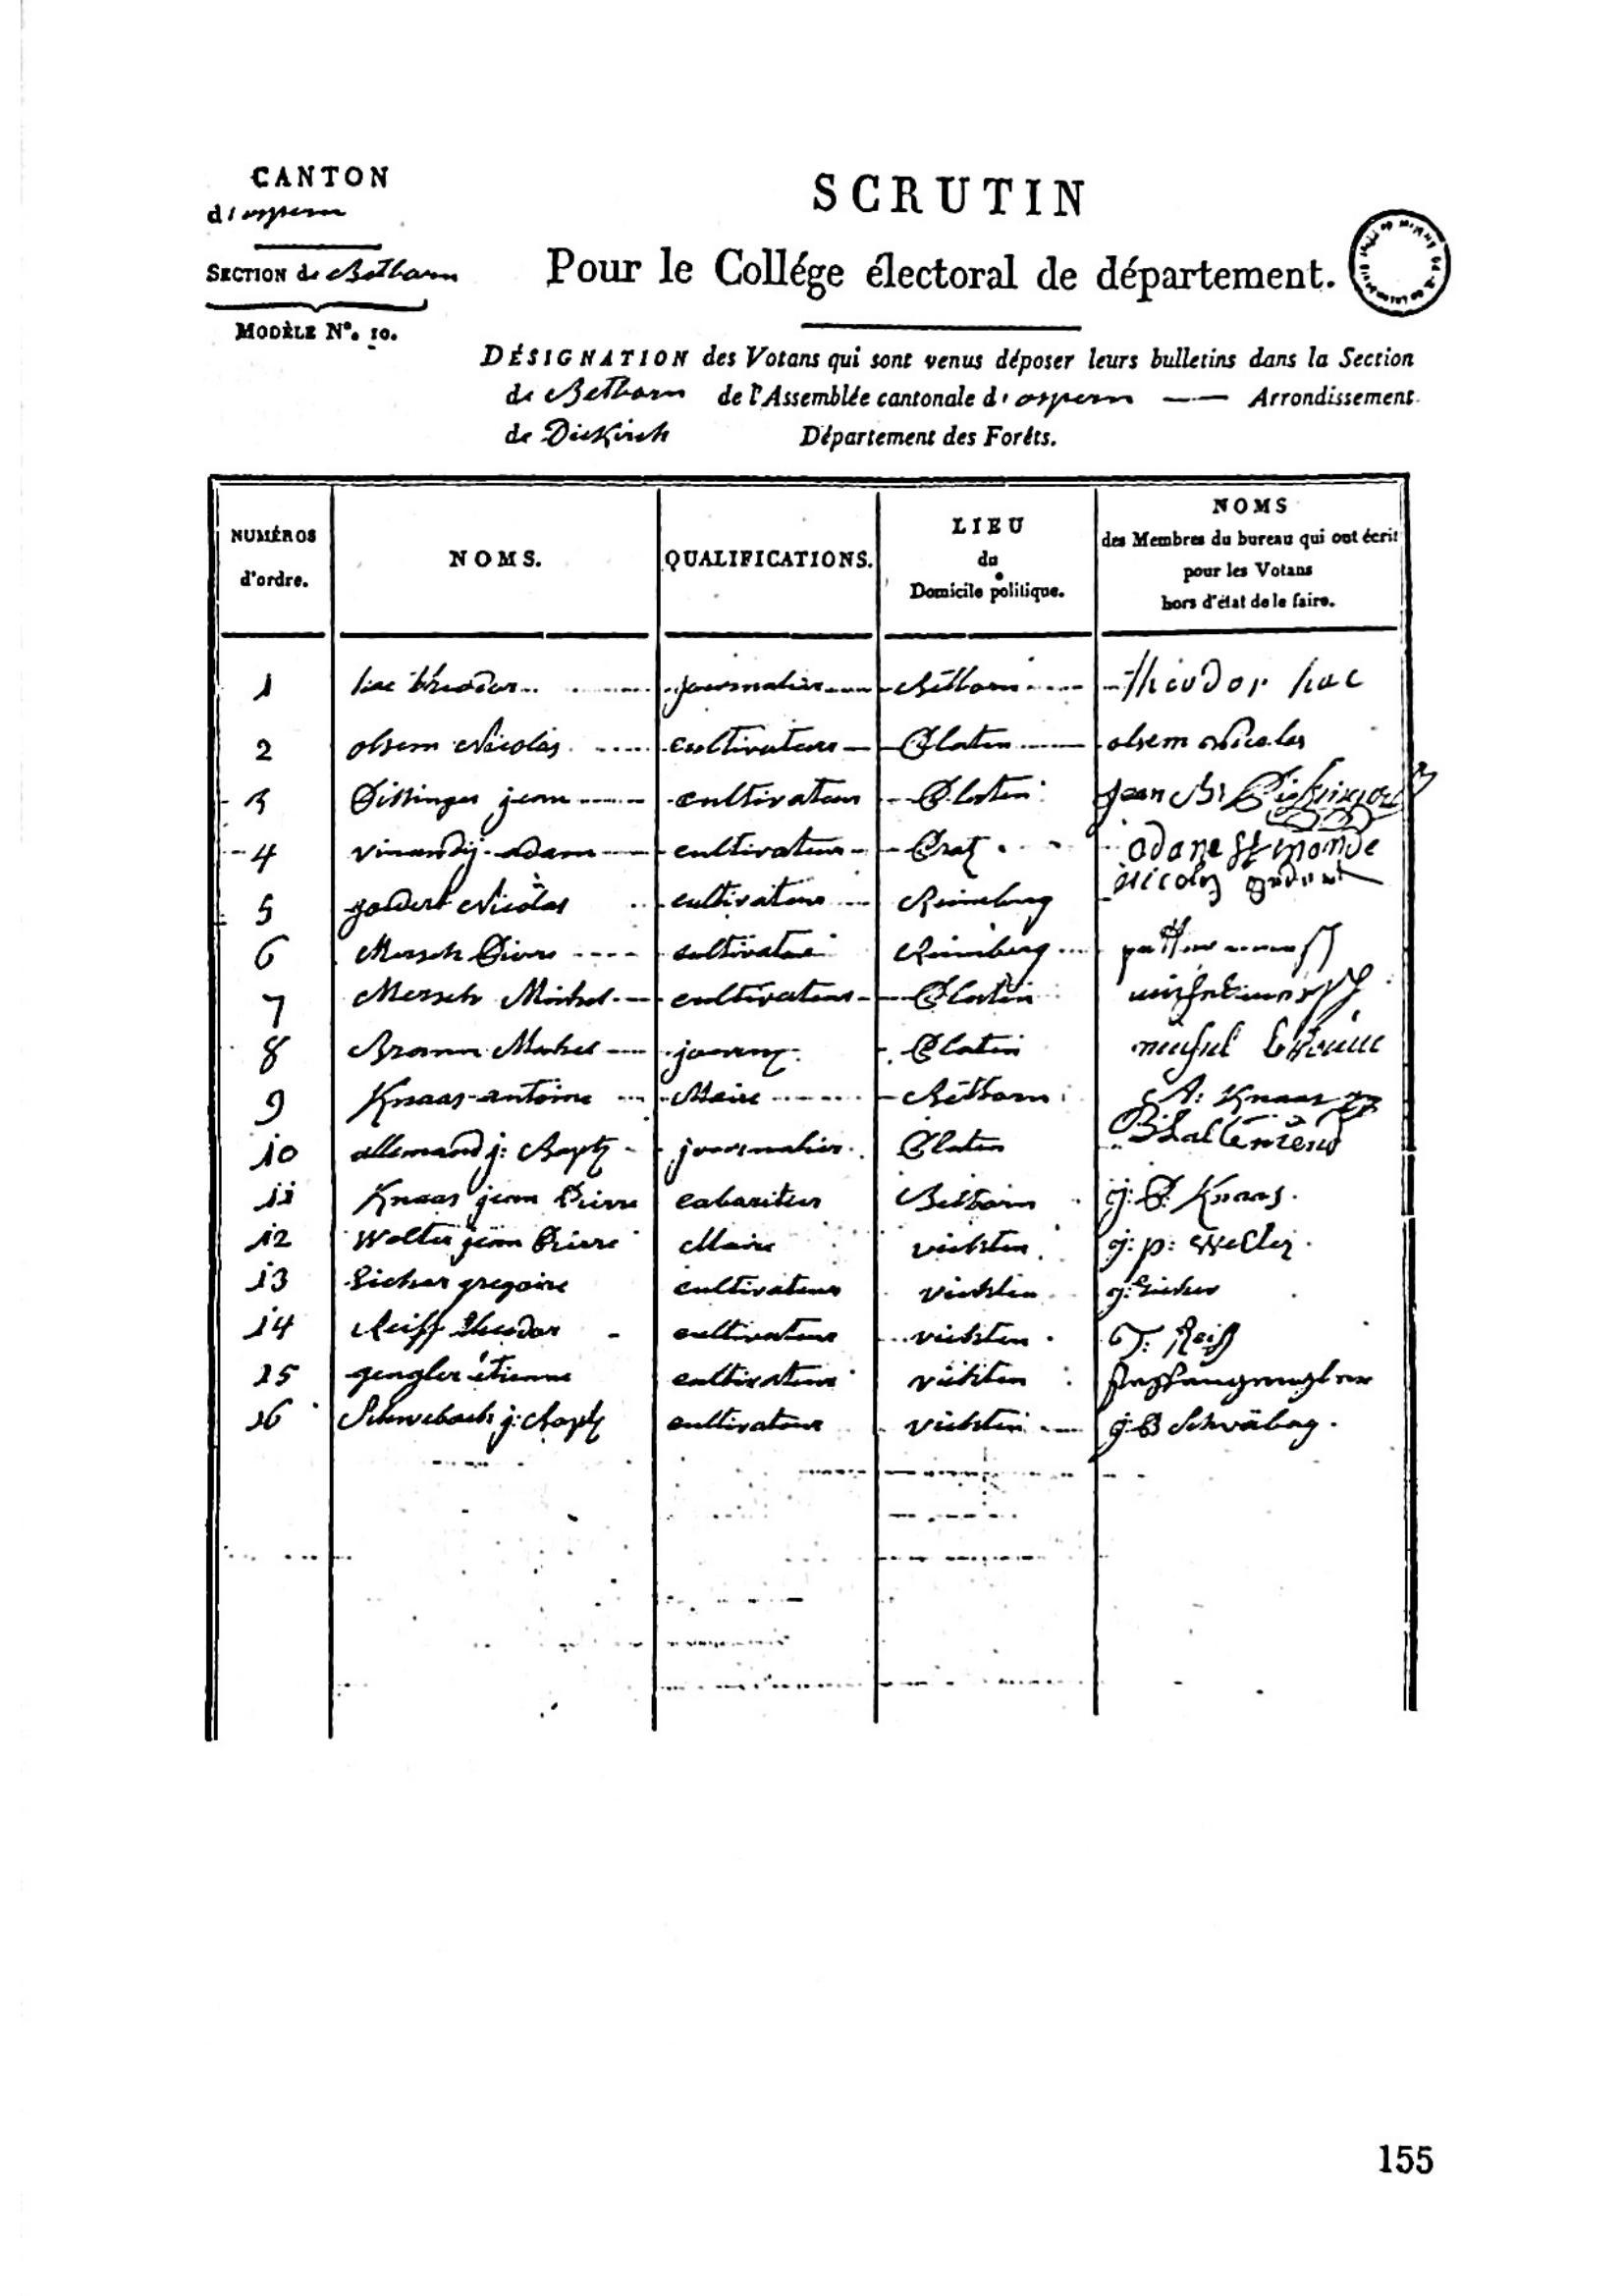 CANTON
d'ospern
SECTION de Betborn
MODÈLE N°. 10.
SCRUTIN
Pour le Collége électoral de département.
DÉSIGNATION des Votans qui sont venus déposer leurs bulletins dans la Section
de Betborn de l'Assemblée cantonale d'ospern Arrondissement
de Diekirch Département des Forêts.
NUMÉROS
d'ordre.
NOMS.
QUALIFICATIONS.
LIEU
du
Domicile politique.
NOMS
des Membres du bureau qui ont écrit
pour les Votans
hors d'état de le faire.
1 hac théodor journalier Bettborn Theodor hac
2 olsem Nicolas cultivateur Platen olsem Nicolas
3 jean cultivateur Platen jean
4 vinandÿ adam cultivateur Pratz
5 godert Nicolas cultivateur Reimberg Nicolas
6 Mersch Pierre cultivateur Reimberg
7 Mersch Michel cultivateur Platen
8 Michel Platen
9 Knaas antoine Maire Bettborn A: Knaas
10 allemand j: Bapt journalier Platen
11 Knaas jean Pierre cabaretier Betborn j: P. Knaas.
12 Wolter jean Pierre Maire vichten j: p:
13 Eicher gregoire cultivateur vichten g: Eicher
14 Reiff theodor cultivateur vichten T: Reiff
15 gengler étienne cultivateur vichten
16 Schwebach j: Bapt cultivateur vichten j B Schwäbag.
155